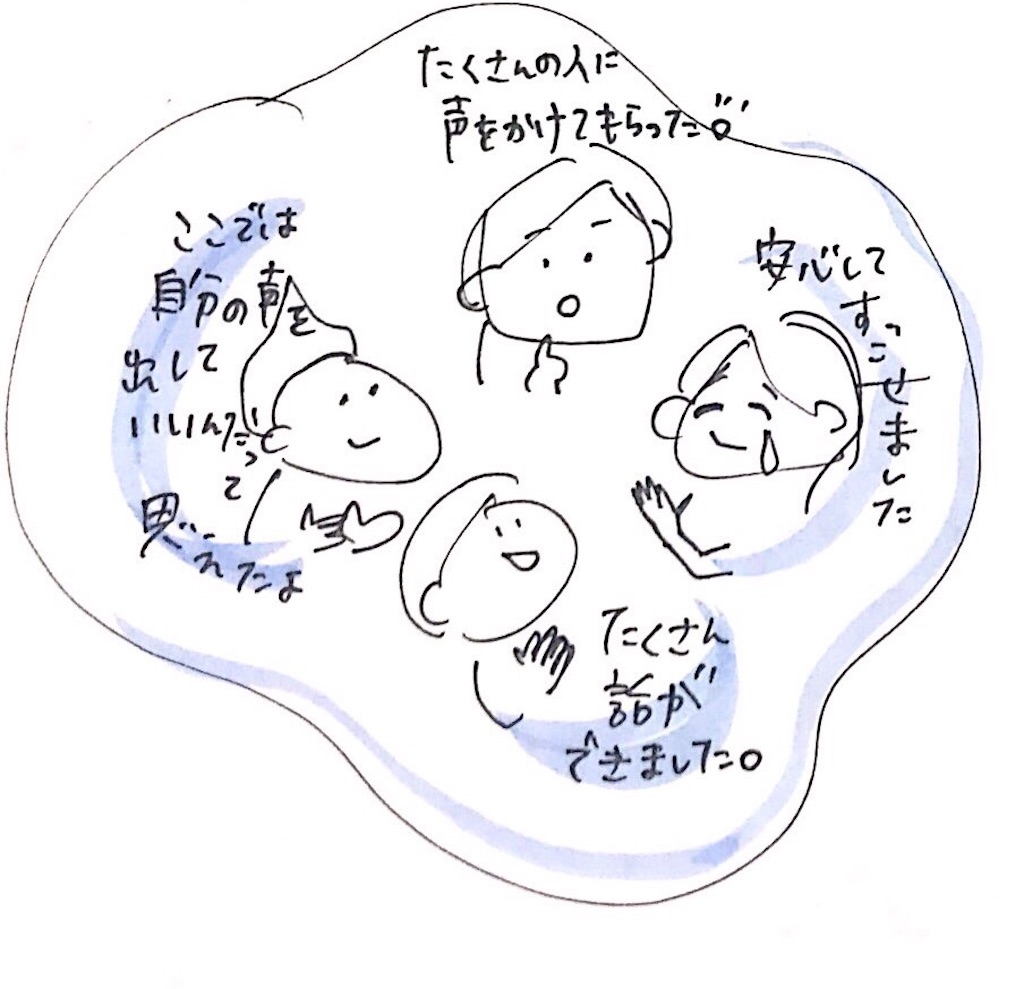 たくさんの人に
声をかけてもらった。
ここでは
自分の声を
出して
いいんだっ
て
思えたよ
安心して
すっ
ごせました
たくさん
話が
できました。